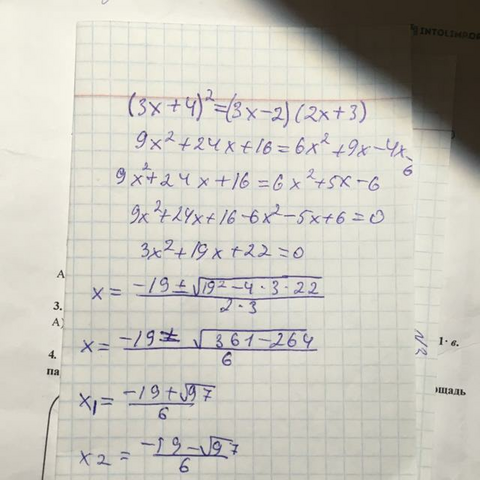 INTOLIMP.OR
(3x+4)²=(3x-2)(2x+3)
9x²+24x+16=6x²+9x-4x-6
9x²+24x+16=6x²+5x-6
9x²+24x+16-6x²-5x+6=0
3x²+19x+22=0
x = (-19±√(19²-4·3·22))/(2·3)
x = (-19±√(361-264))/6
x₁ = (-19+√97)/6
x2 = (-19-√97)/6
А
3.
А)
4.
па
1· в.
ощадь